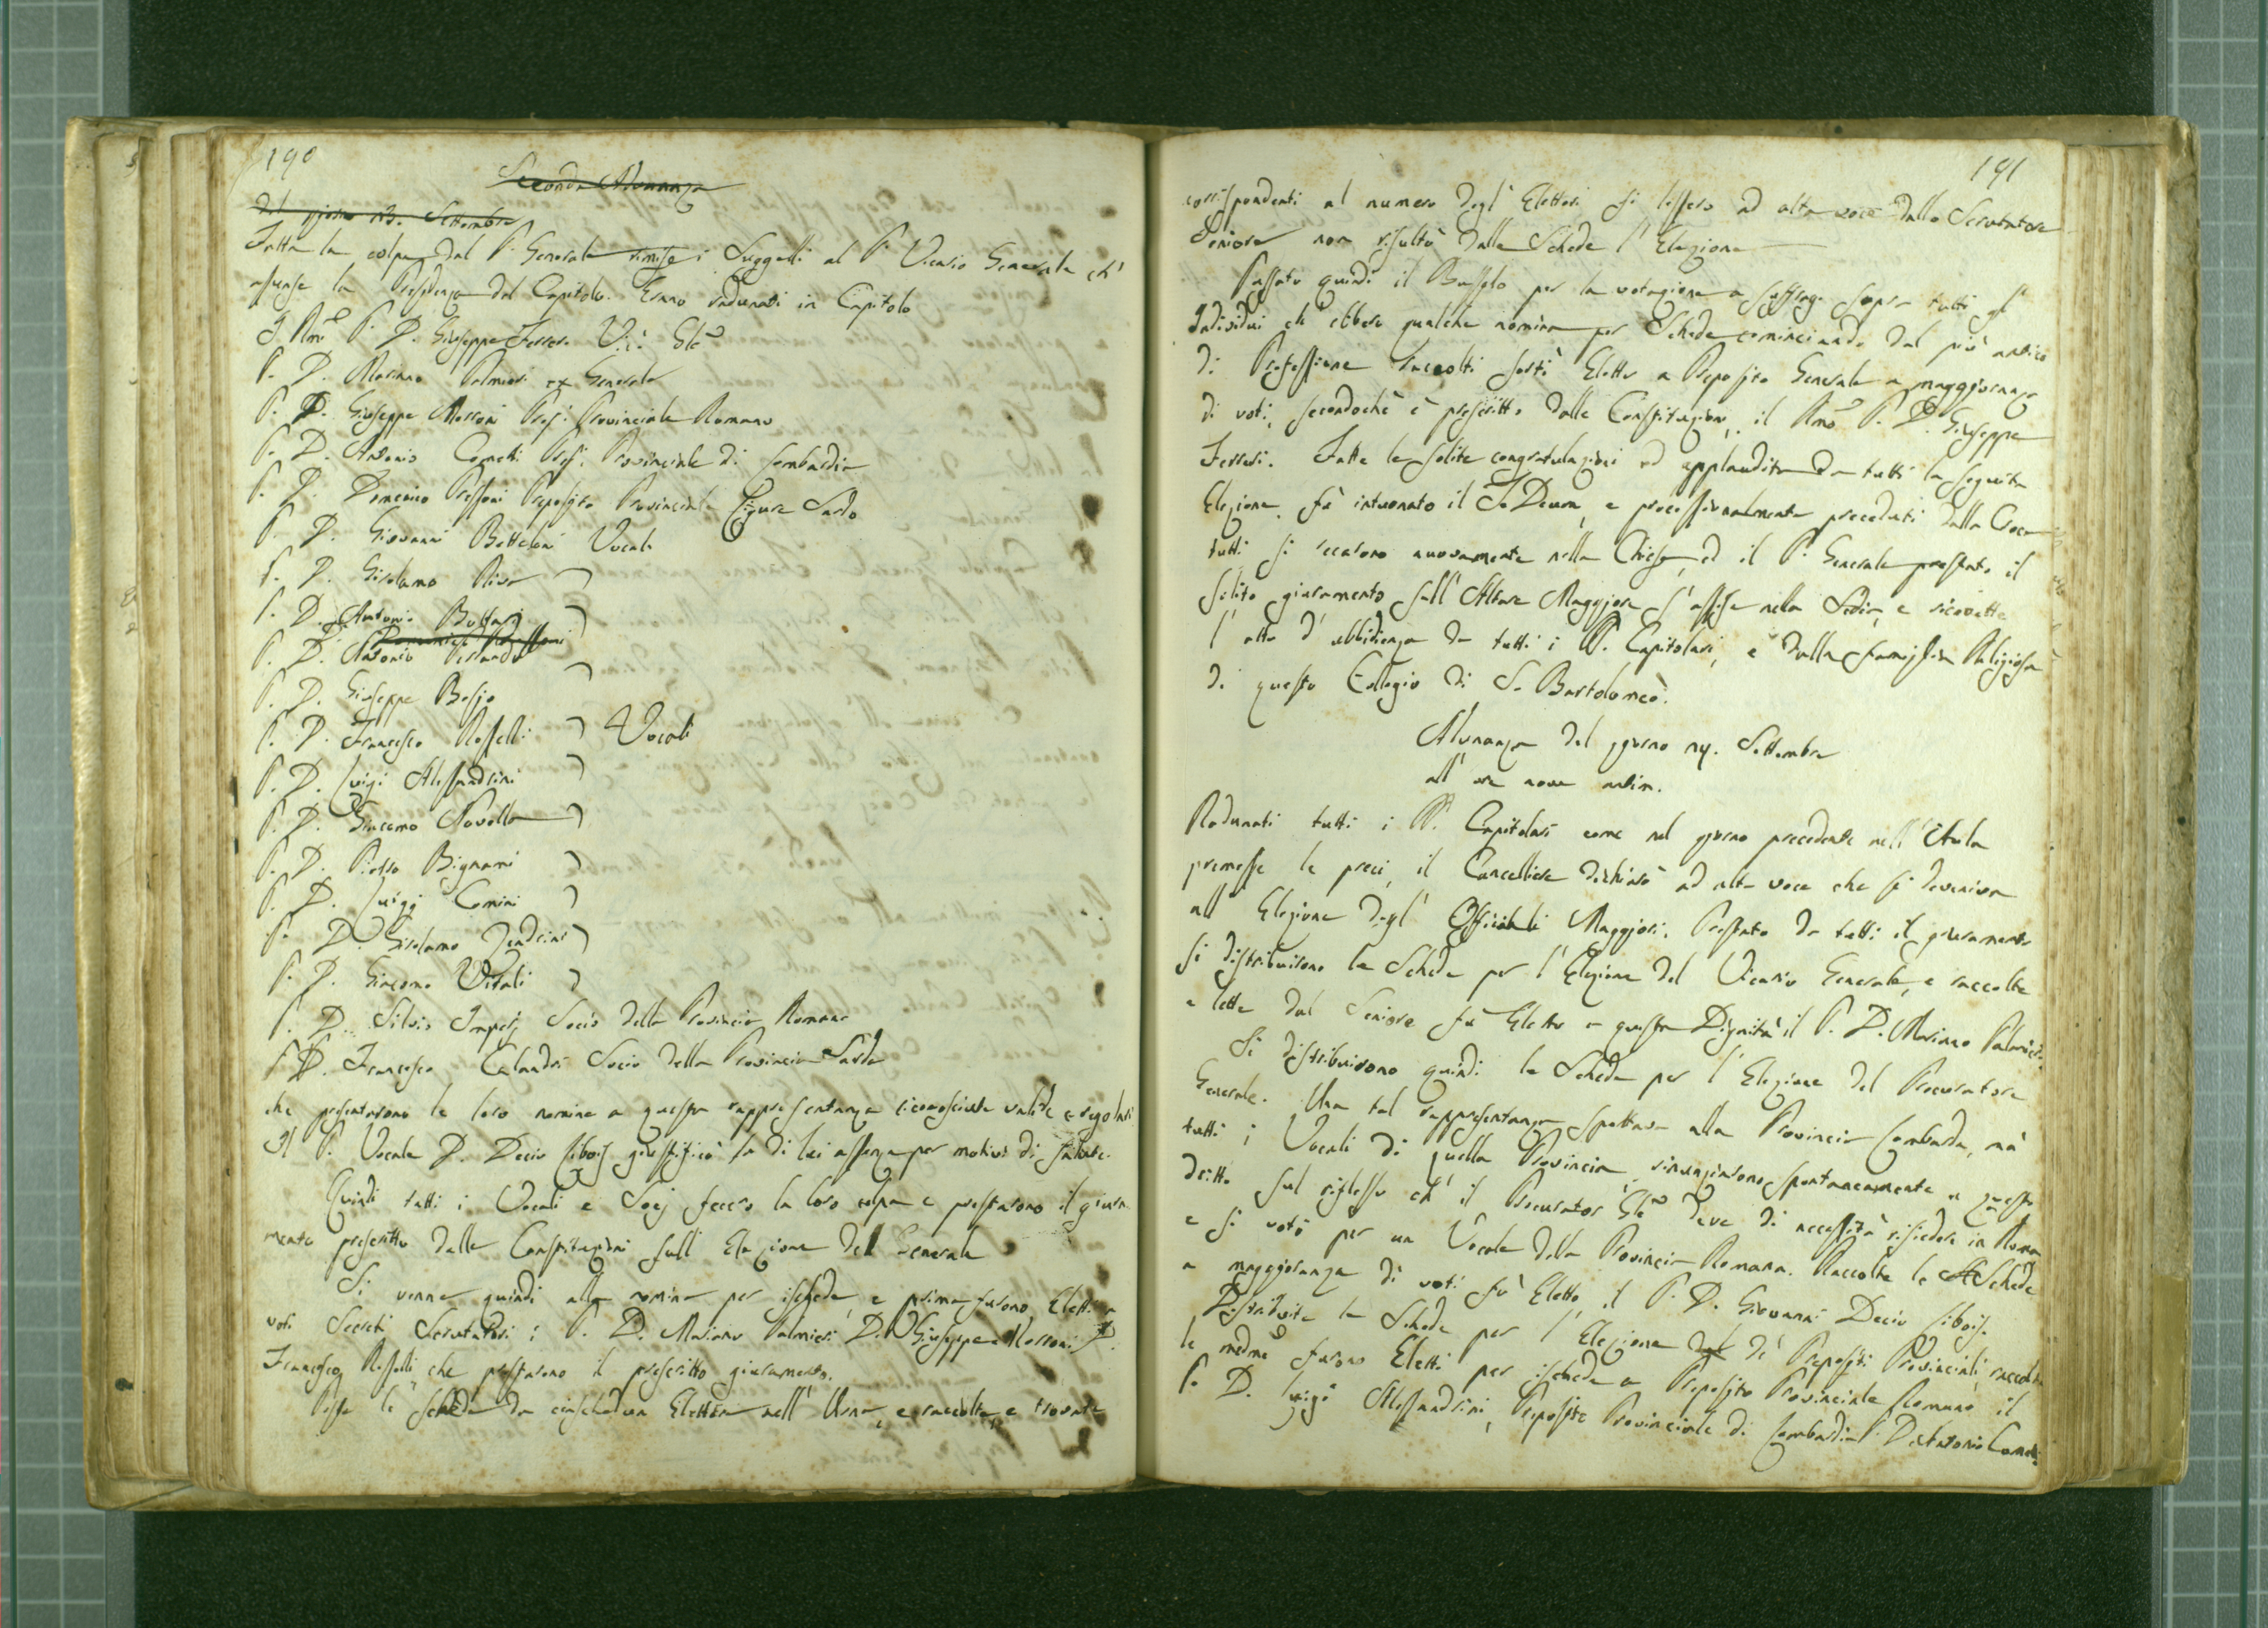 190
Seconda Adunanza
Del giorno 13. Settembre
Fatta la colpa dal P. Generale rimise i Suggelli al P. Vicario Generale ch'
assunse la Presidenza del Capitolo. Erano radunati in Capitolo
Il Rmo P. D. Giuseppe Ferreri Vic. Gle
P. D. Mariano Palmieri ex Generale
P. D. Giuseppe Morroni Prep. Provinciale Romano
P. D. Antonio Cometti Prep. Provinciale di Lombardia
P. D. Domenico Pressoni Preposito Provinciale Ligure Sardo
P. D. Giovanni Bettoloni Vocale
P. D. Girolamo Riva
P. D. Antonio Buttari
P. D. Antonio
P. D. Giuseppe Besio
P. D. Francesco Rosselli Vocali
P. D. Luigi Alessandrini
P. D. Giacomo Novella
P. D. Pietro Bignami
P. D. Luigi Comini
P. D. Girolamo Zendrini
P. D. Giacomo Vitali
P. D. Silvio Imperj Socio della Provincia Romana
P. D. Francesco Calandri Socio della Provincia Sarda
che presentarono le loro nomine a questa rappresentanza riconosciute valide e regolari
Il P. Vocale D. Decio Libois giustificò la di lui assenza per motivi di salute.
Quindi tutti i Vocali e Socj fecero la loro colpa e prestarono il giura
mento prescritto dalle Constituzioni sull' Elezione del Generale
Si venne quindi alla nomina per ischede, e prima furono Eletti a
voti Secreti Scrutatori i P. D. Mariano Palmieri D. Giuseppe Morroni D.
Francesco Rosselli che prestarono il prescritto giuramento.
Poste le schede da ciaschedun Elettore nell' Urna, e raccolte, e trovate
191
corrispondenti al numero degl' Elettori si lessero ad alta voce dallo Scrutatore
Seniore non risultò dalle Schede l' Elezione
Passato quindi il Bussolo per la votazione a suffragi sopra tutti gl'
Individui ch' ebbero qualche nomina per Schede cominciando dal più antico
di Professione raccolti sortì Eletto a Preposito Generale a maggioranza
di voti, secondochè è prescritto dalle Constituzioni, il Rmo P. D. Giuseppe
Ferreri. Fatte le solite congratulazioni ed applaudita da tutti la seguita
Elezione fù intuonato il Te Deum, e processionalmente preceduti dalla Croce
tutti si recarono nuovamente nella Chiesa, ed il P. Generale prestato il
solito giuramento sull' Altare Maggiore s' assise nella Sedia, e ricevette
l' atto d' ubbidienza da tutti i PP. Capitolari, e dalla famiglia Religiosa
di questo Collegio di S. Bartolomeo.
Adunanza del giorno 14. Settembre
all' ore nove antim.
Radunati tutti i PP. Capitolari come nel giorno precedente nell' Aula
premesse le preci, il Cancelliere dichiarò ad alta voce che si deveniva
all' Elezione degl' Officiali Maggiori. Prestato da tutti il giuramento
si distribuirono le Schede per l' Elezione del Vicario Generale, e raccolte
e lette dal Seniore fù Eletto a questa Dignità il P. D. Mariano Palmieri.
Si distribuirono quindi le Schede per l' Elezione del Procuratore
Generale. Una tal rappresentanza spettava alla Provincia Lombarda, mà
tutti i Vocali di quella Provincia rinunziarono spontaneamente a questo
dritto sul riflesso ch' il Procurator Gle deve di necessità risiedere in Roma
e si votò per un Vocale della Provincia Romana. Raccolte le Schede
a maggioranza di voti fù Eletto il P. D. Giovanni Decio Libois.
Distribuite le Schede per l' Elezione de' Prepositi Provinciali, raccolte
le medme furono Eletti per ischede a Preposito Provinciale Romano il
P. D. Luigi Alessandrini, Preposito Provinciale di Lombardia P. D. Antonio Cometti,